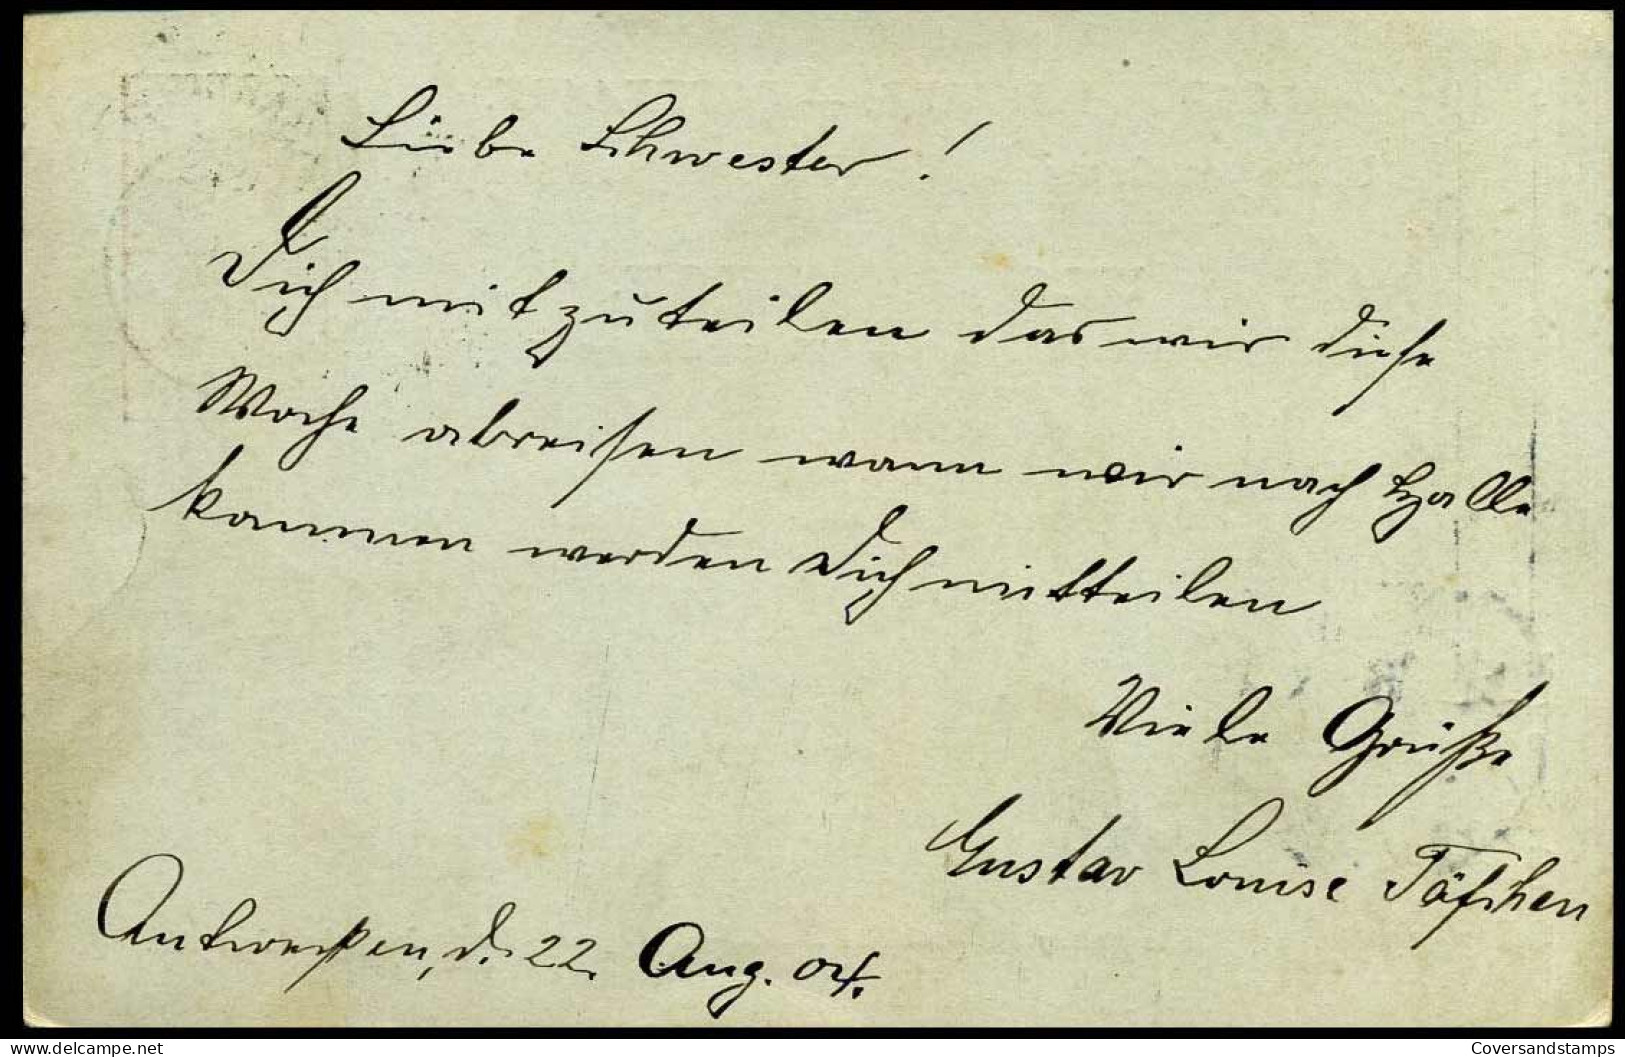 Liebe Schwester!
Dich mitzuteilen das wir diese
Woche abreisen wann wir nach Halle
kommen werden Dich mitteilen
Viele Grüße
Gustav Louise
Antwerpen, d. 22. Aug. 04.
www.delcampe.net
Coversandstamps